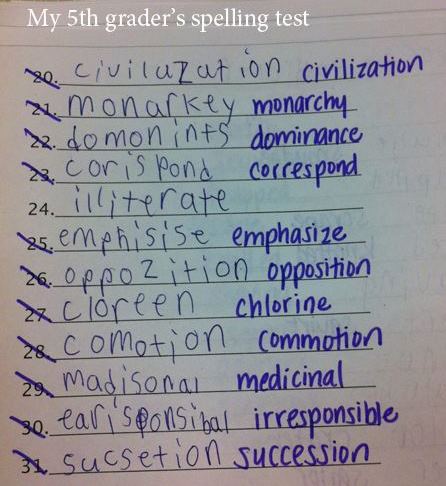 My 5th grader's spelling test
20. civiluzation civilization
21. monarkey monarchy
22. domonints dominance
23. corispond correspond
24. illiterate
25. emphisise emphasize
26. oppozition opposition
27. cloreen chlorine
28. comotion commotion
29. madisonal medicinal
30. earisponsibal irresponsible
31. sucsetion succession